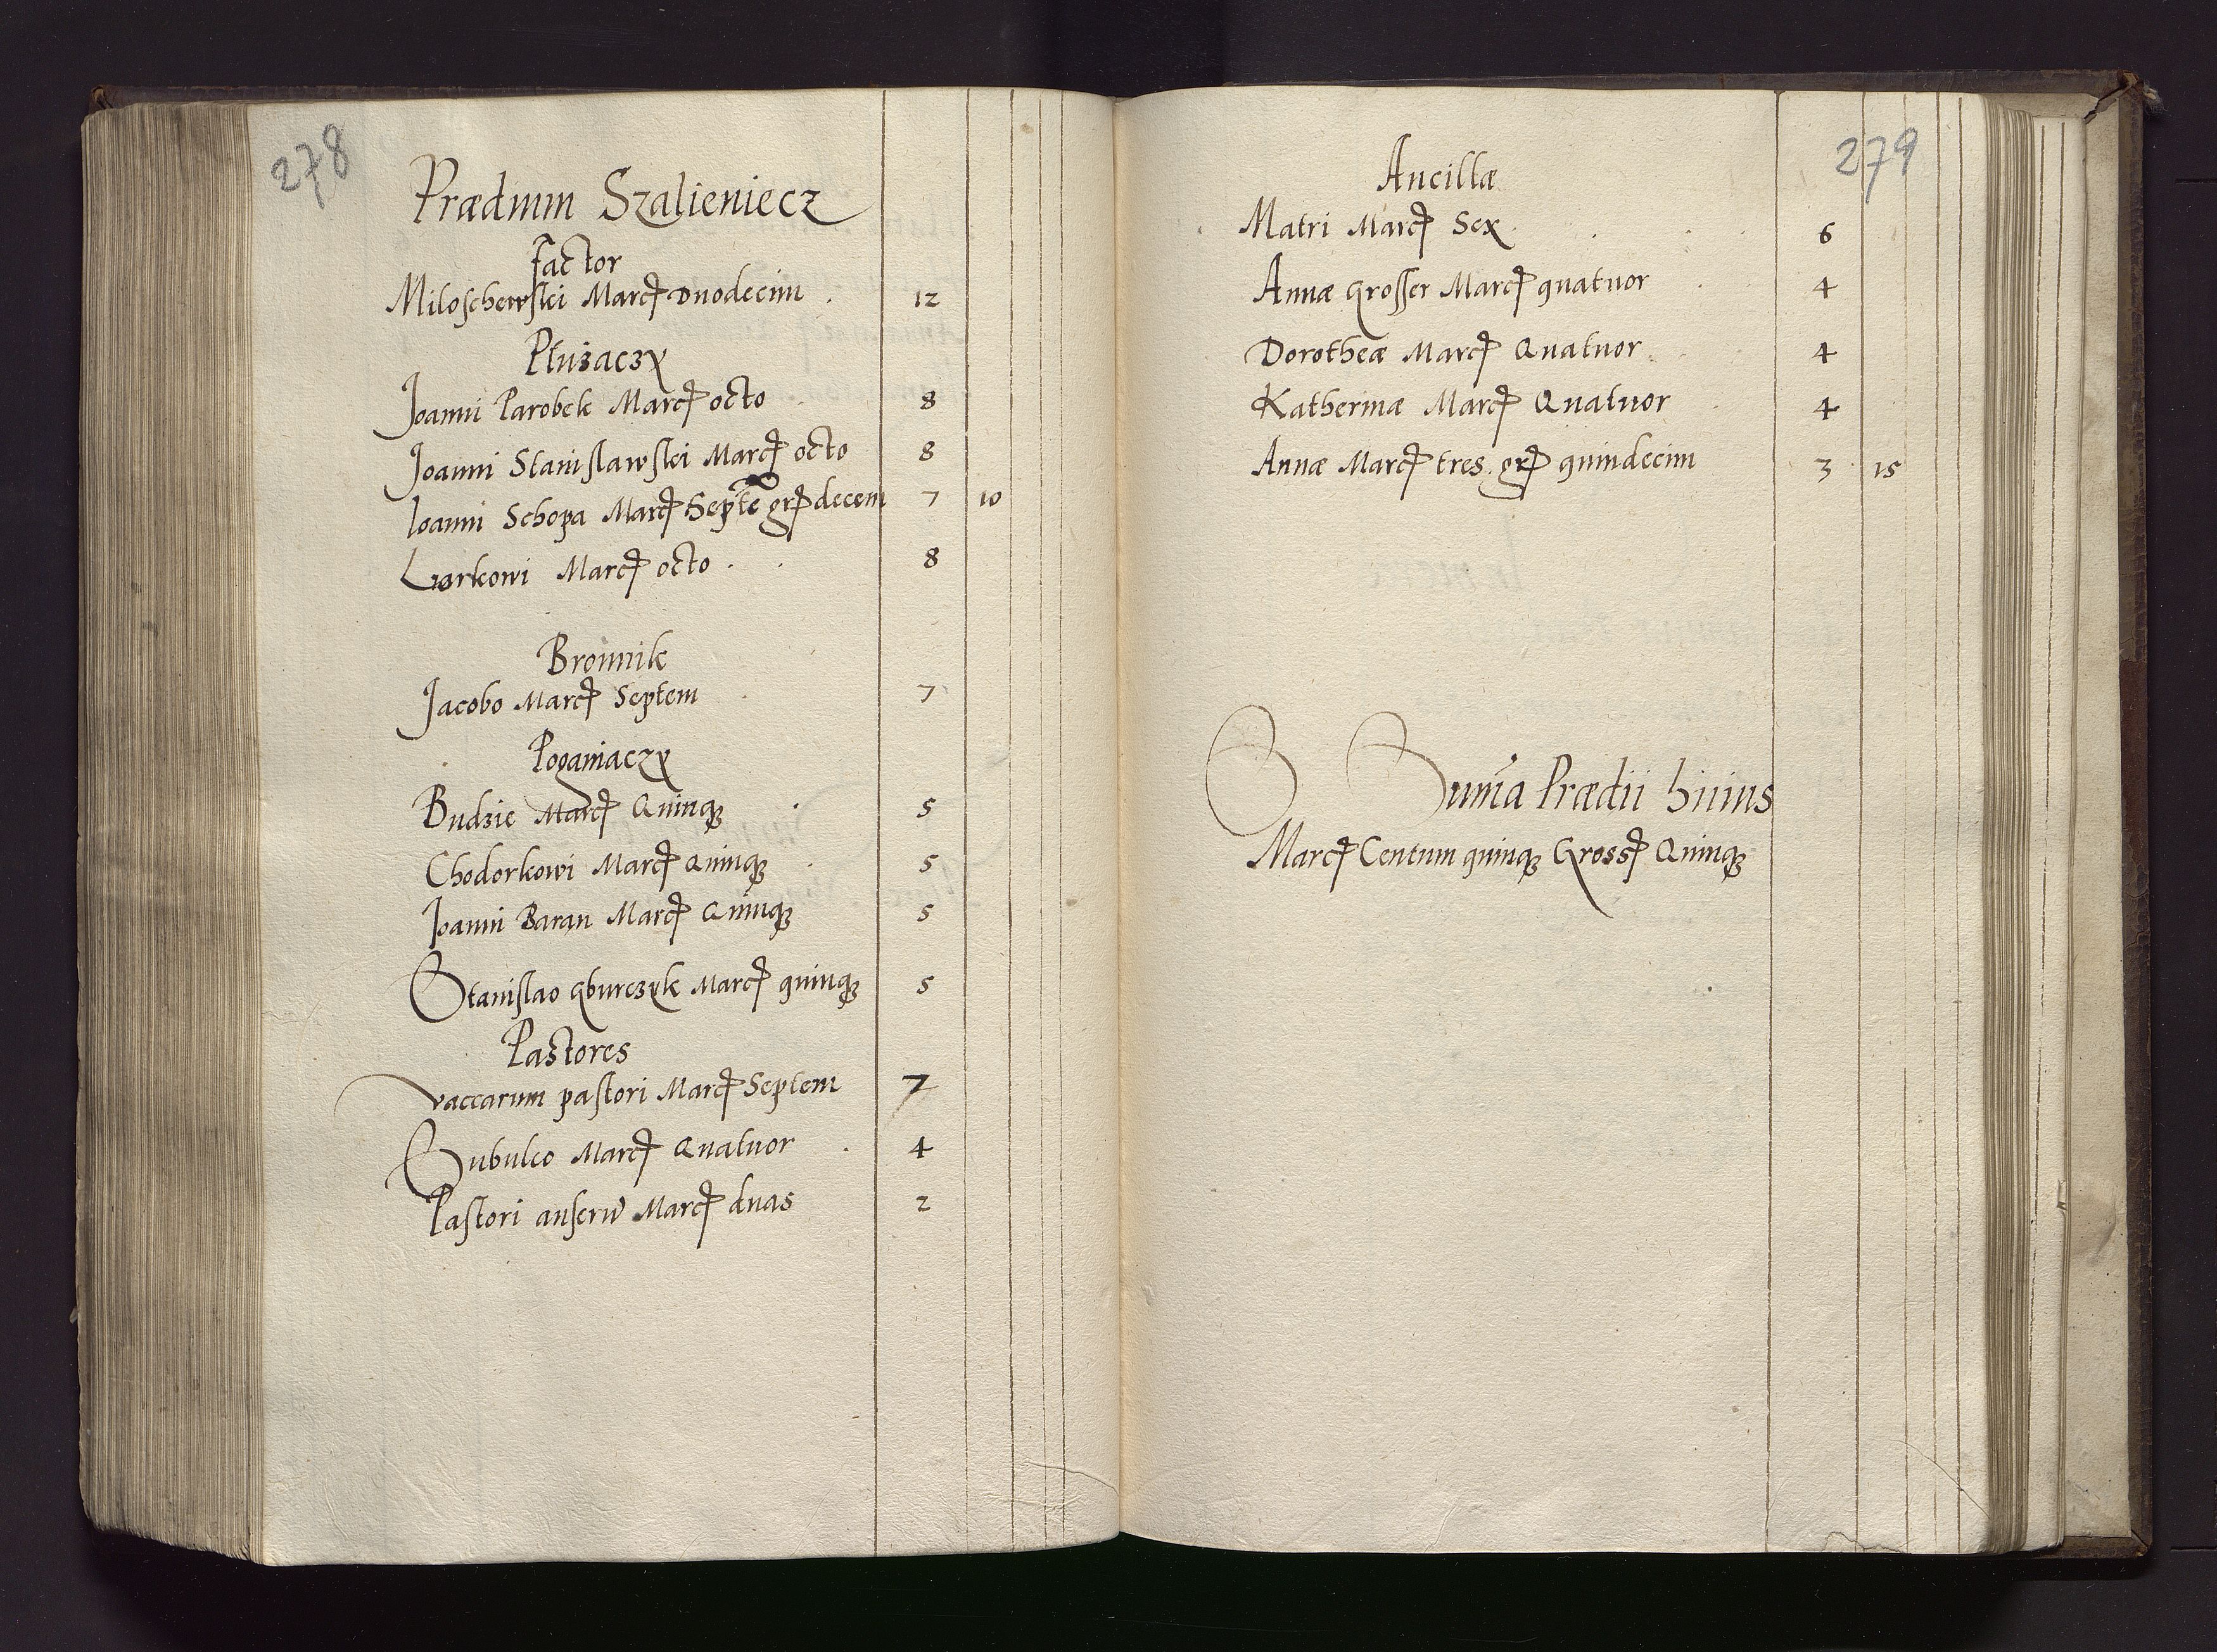 278
Prædium Szalieniecz
Factor
Miloschewskei Marcꝭ Duodecim 12
Pługaczÿ
Joanni Parobek Marcꝭ octo 8
Joanni Stanislawskei Marcꝭ octo 8
Ioanni Schopa Marcꝭ Septē grꝭ decem 7 10
Markowi Marcꝭ octo 8
Bronnik
Jacobo Marcꝭ Septem 7
Poganiaczÿ
Budzie Marcꝭ Quinqꝫ 5
Chodorkowi Marcꝭ Quinqꝫ 5
Joanni Baran Marcꝭ Quinqꝫ 5
Stanislao Gburczyk Marcꝭ quinqꝫ 5
Pastores
vaccarum pastori Marcꝭ Septem 7
Subulco Marcꝭ Quatuor 4
Pastori anserū Marcꝭ duas 2
279
Ancillæ
Matri Marcꝭ Sex 6
Annæ Grosser Marcꝭ quatuor 4
Dorotheæ Marcꝭ Quatuor 4
Katherinæ Marcꝭ Quatuor 4
Annæ Marcꝭ tres grꝭ quindecim 3 15
Sum̄a Prædii huius
Marcꝭ Centum quinqꝫ Grossꝭ Quinqꝫ